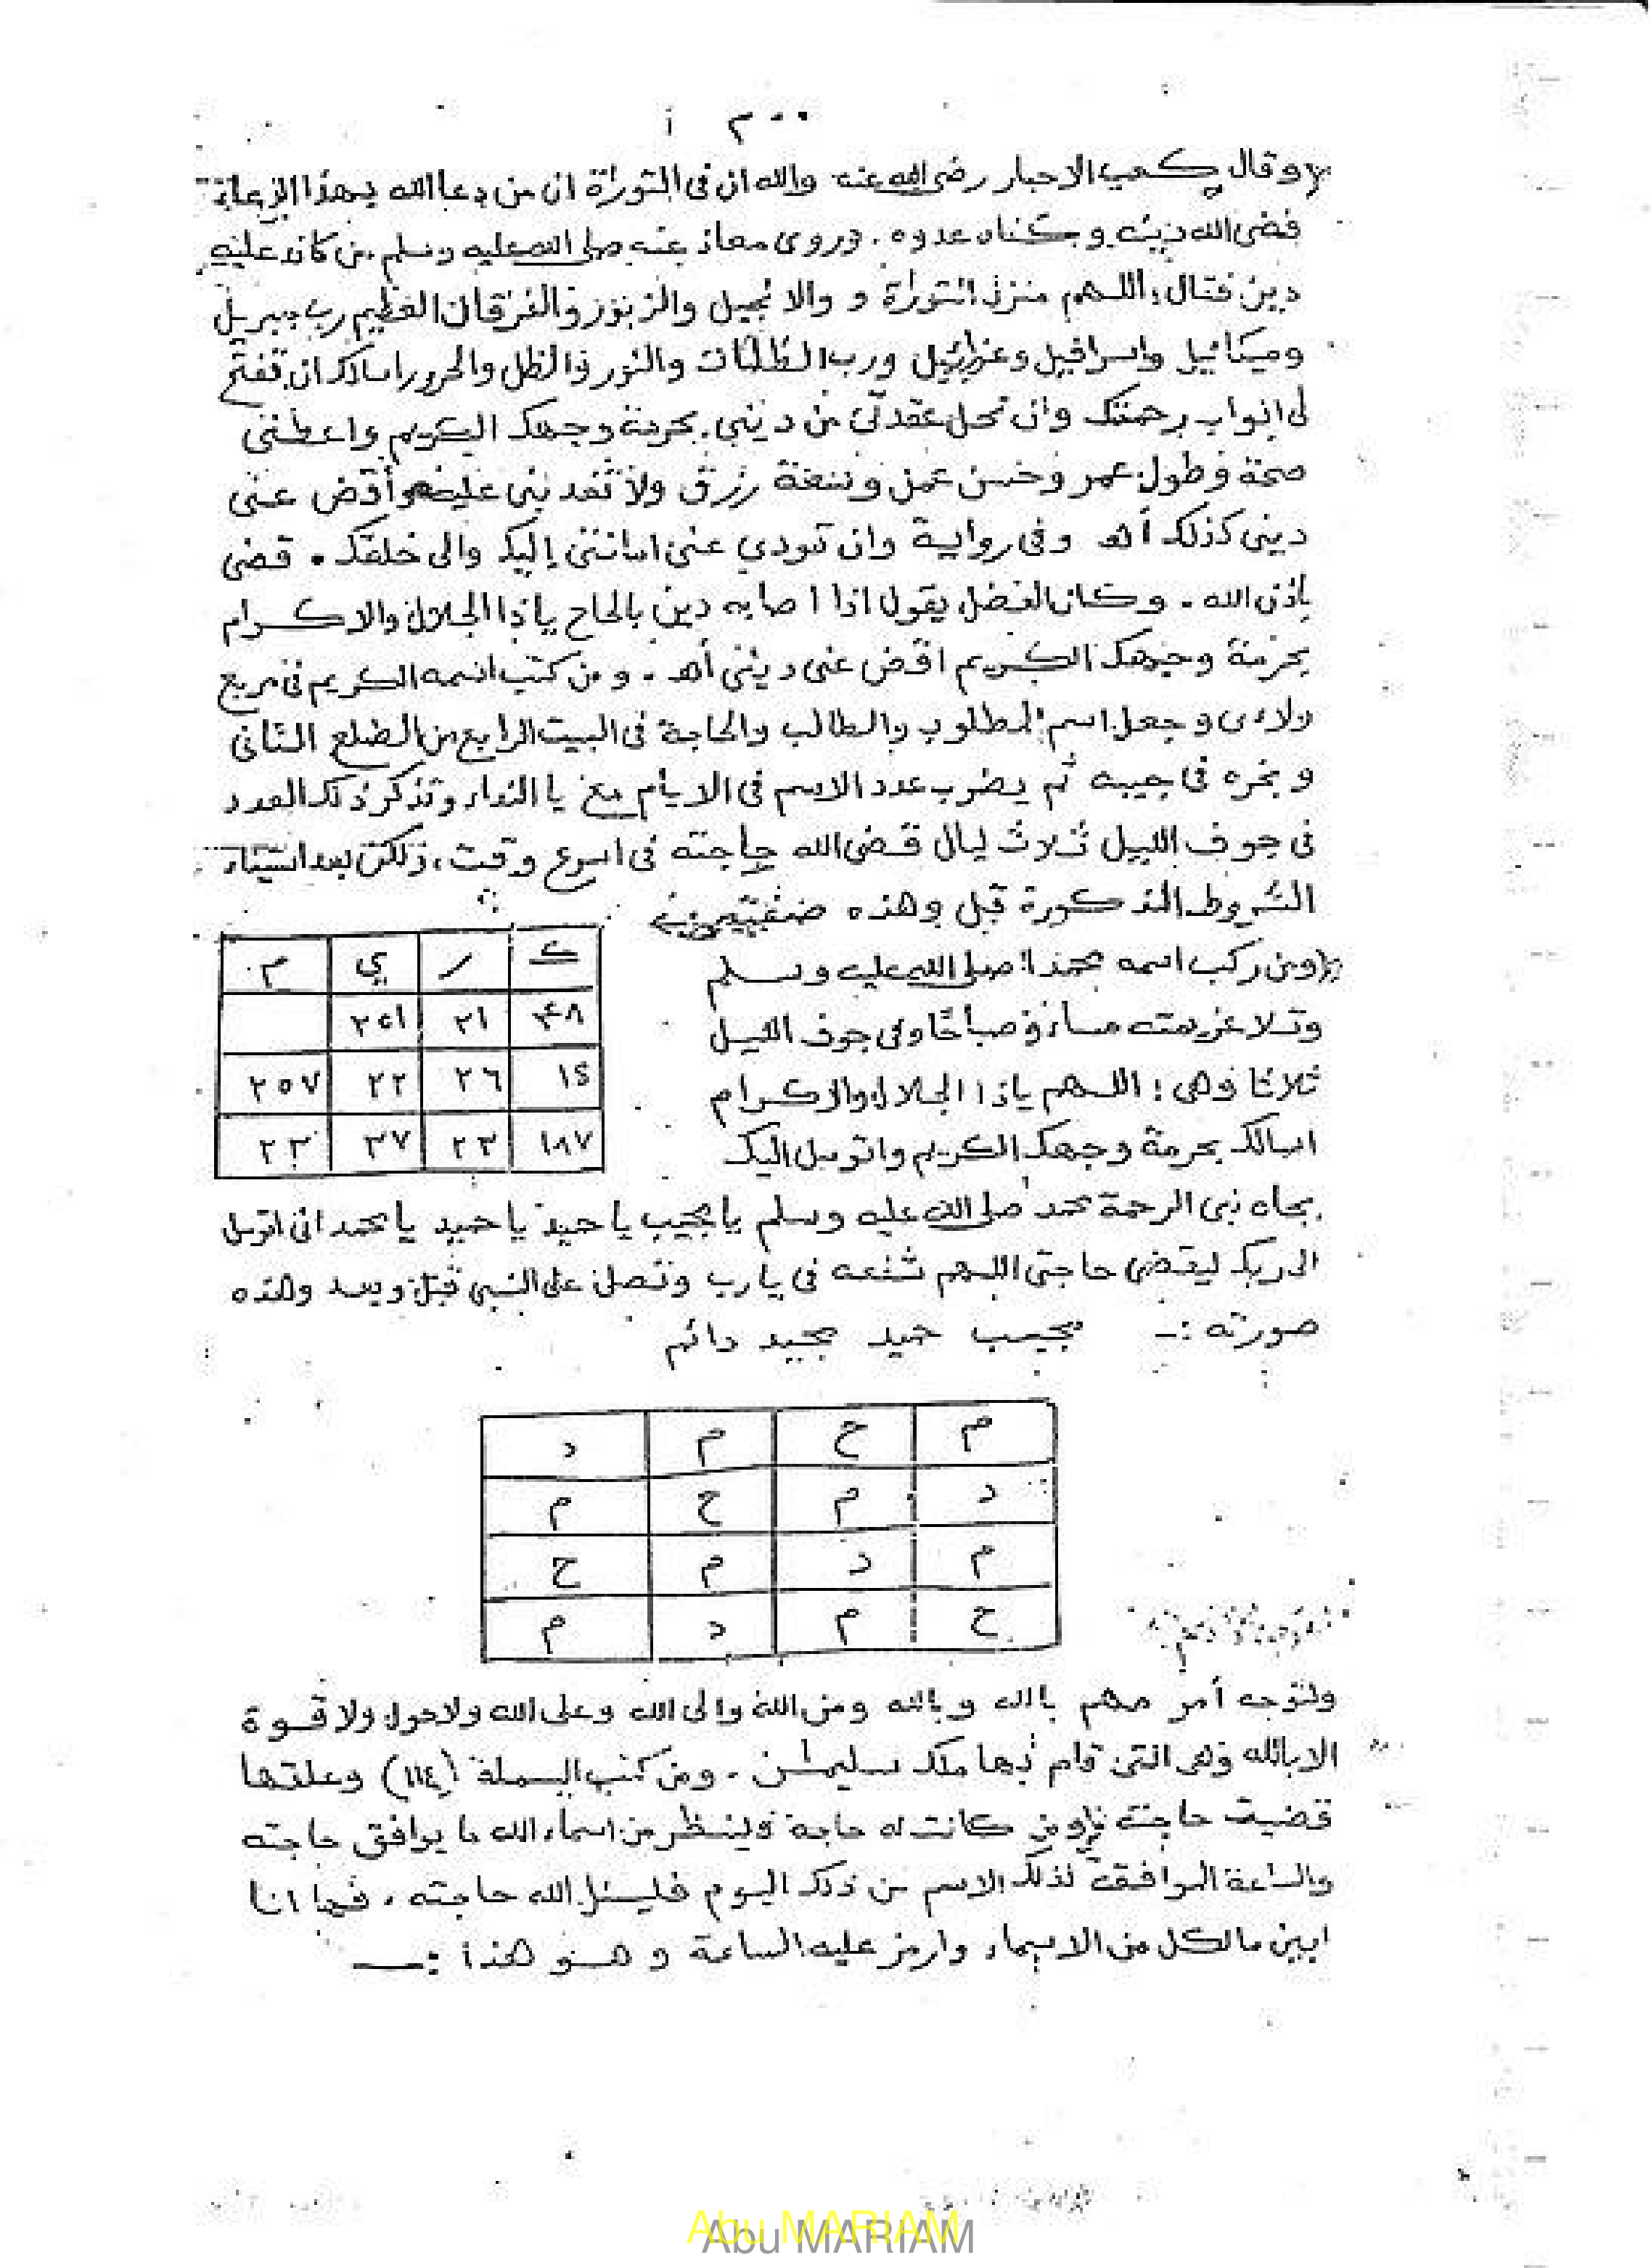 ٢٠٠
وقال كعب الاحبار رضى الله عنه والله ان فى التوراة ان من دعا الله بهذا الدعاء
قضى الله دينه وكفاه عدوه . وروى معاذ عنه صلى الله عليه وسلم من كان عليه
دين فقال : اللهم منزل التوراة و والانجيل والزبور والفرقان العظيم رب جبريل
وميكائيل واسرافيل وعزرائيل ورب الظلمات والنور والظل والحرور اسالك ان تفتح
لى ابواب رحمتك وان تحل عقدتى من دينى بحرمة وجهك الكريم واعطنى
صحة وطول عمر وحسن عمل وسعة رزق ولا عليه وأقض عنى
دينى كذلك أهـ وفى رواية وان تودي عنى امانتى إليك والى خلقك . قضى
بإذن الله . وكان الفضل يقول اذا اصابه دين بالحاح ياذا الجلال والاكرام
بحرمة وجهك الكريم اقض عنى دينى أهـ . ومن كتب اسمه الكريم فى مربع
ولاءى وجعل اسم المطلوب والطالب والحاجة فى البيت الرابع من الضلع الثانى
وبخره فى جيبه ثم يضرب عدد الاسم فى الايام مع يا النداء وتذكر ذلك العدد
فى جوف الليل ثلاث ليال قضى الله حاجته فى اسرع وقت ، ذلك بعد استيفاء
الشروط المذكورة قبل وهذه
ك ر ي م
٤٨ ٢١ ٢٥١
١٤ ٢٦ ٢٢ ٢٥٧
١٨٧ ٢٣ ٣٧ ٢٣
ومن ركب اسمه محمدا صلى الله عليه وسلم
وتلا عزيمته مساء وصباحًا وفى جوف الليل
ثلاثا وهى : اللهم ياذا الجلال والاكرام
اسالك بحرمة وجهك الكريم واتوسل اليك
بجاه نبى الرحمة محمد صلى الله عليه وسلم يا مجيب يا حميد يا حميد يا محمد انى اتوسل
الى ربك ليقضى حاجتى اللهم شفعه فى يارب وتصلى على النبي قبل وبعد وهذه
صورته :- مجيب حميد مجيد دائم
م ح م د
د م ح م
م د م ح
ح م د م
ولتوجه أمر مهم بالله وبالله ومن الله والى الله وعلى الله ولاحول ولا قوة
الابالله وهى التى قام بها ملك سليمان . ومن كتب البسملة (١١٤) وعلقها
قضيت حاجته ومن كانت له حاجة ولينظر من اسماء الله ما يوافق حاجته
والساعة الموافقة لذلك الاسم من ذلك اليوم فليسئل الله حاجته . فها انا
ابين مالكل من الاسماء وارمز عليه الساعة و هو هذا :ـــ
Abu MARIAM
Abu MARIAM